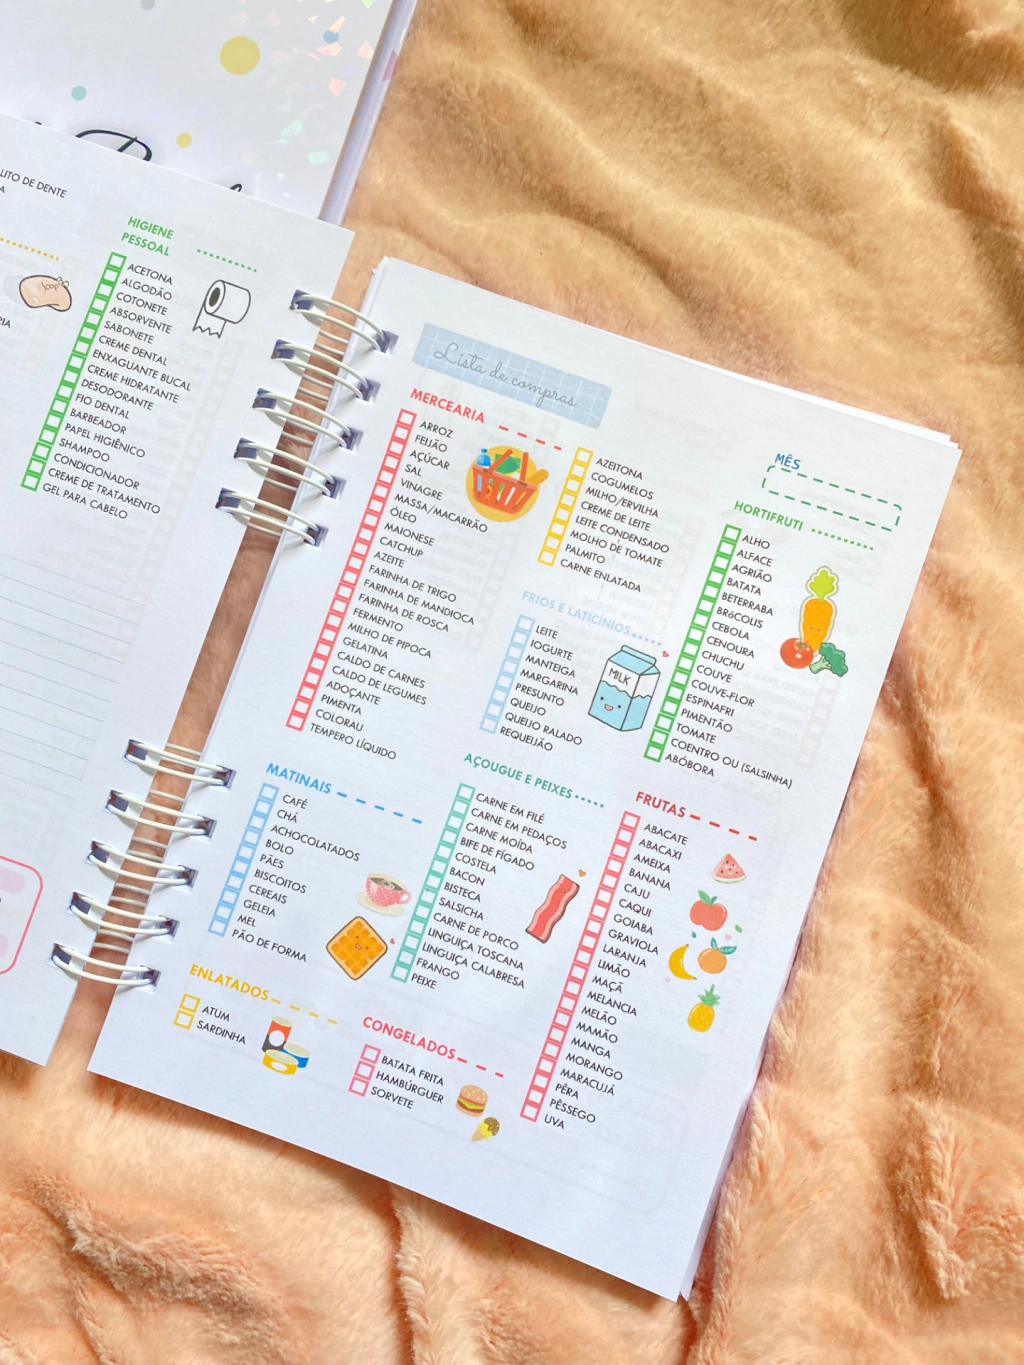 UTO DE DENTE
HIGIENE
PESSOAL
ACETONA
ALGODÃO
COTONETE
ABSORVENTE
SABONETE
CREME DENTAL
ENXAGUANTE BUCAL
CREME HIDRATANTE
DESODORANTE
FIO DENTAL
BARBEADOR
PAPEL HIGIÊNICO
SHAMPOO
CONDICIONADOR
CREME DE TRATAMENTO
GEL PARA CABELO
Soap
Lista de compras
MERCEARIA
ARROZ
FEIJÃO
AÇÚCAR
SAL
VINAGRE
MASSA/MACARRÃO
ÓLEO
MAIONESE
CATCHUP
AZEITE
FARINHA DE TRIGO
FARINHA DE MANDIOCA
FARINHA DE ROSCA
FERMENTO
MILHO DE PIPOCA
GELATINA
CALDO DE CARNES
CALDO DE LEGUMES
ADOÇANTE
PIMENTA
COLORAU
TEMPERO LÍQUIDO
AZEITONA
COGUMELOS
MILHO/ERVILHA
CREME DE LEITE
LEITE CONDENSADO
MOLHO DE TOMATE
PALMITO
CARNE ENLATADA
FRIOS E LATICÍNIOS
LEITE
IOGURTE
MANTEIGA
MARGARINA
PRESUNTO
QUEIJO
QUEIJO RALADO
REQUEIJÃO
MILK
MÊS
HORTIFRUTI
ALHO
ALFACE
AGRIÃO
BATATA
BETERRABA
BRóCOLIS
CEBOLA
CENOURA
CHUCHU
COUVE
COUVE-FLOR
ESPINAFRI
PIMENTÃO
TOMATE
COENTRO OU (SALSINHA)
ABÓBORA
MATINAIS
CAFÉ
CHÁ
ACHOCOLATADOS
BOLO
PÃES
BISCOITOS
CEREAIS
GELEIA
MEL
PÃO DE FORMA
AÇOUGUE E PEIXES
CARNE EM FILÉ
CARNE EM PEDAÇOS
CARNE MOÍDA
BIFE DE FÍGADO
COSTELA
BACON
BISTECA
SALSICHA
CARNE DE PORCO
LINGUIÇA TOSCANA
LINGUIÇA CALABRESA
FRANGO
PEIXE
FRUTAS
ABACATE
ABACAXI
AMEIXA
BANANA
CAJU
CAQUI
GOIABA
GRAVIOLA
LARANJA
LIMÃO
MAÇÃ
MELANCIA
MELÃO
MAMÃO
MANGA
MORANGO
MARACUJÁ
PÊRA
PÊSSEGO
UVA
ENLATADOS
ATUM
SARDINHA
CONGELADOS
BATATA FRITA
HAMBÚRGUER
SORVETE